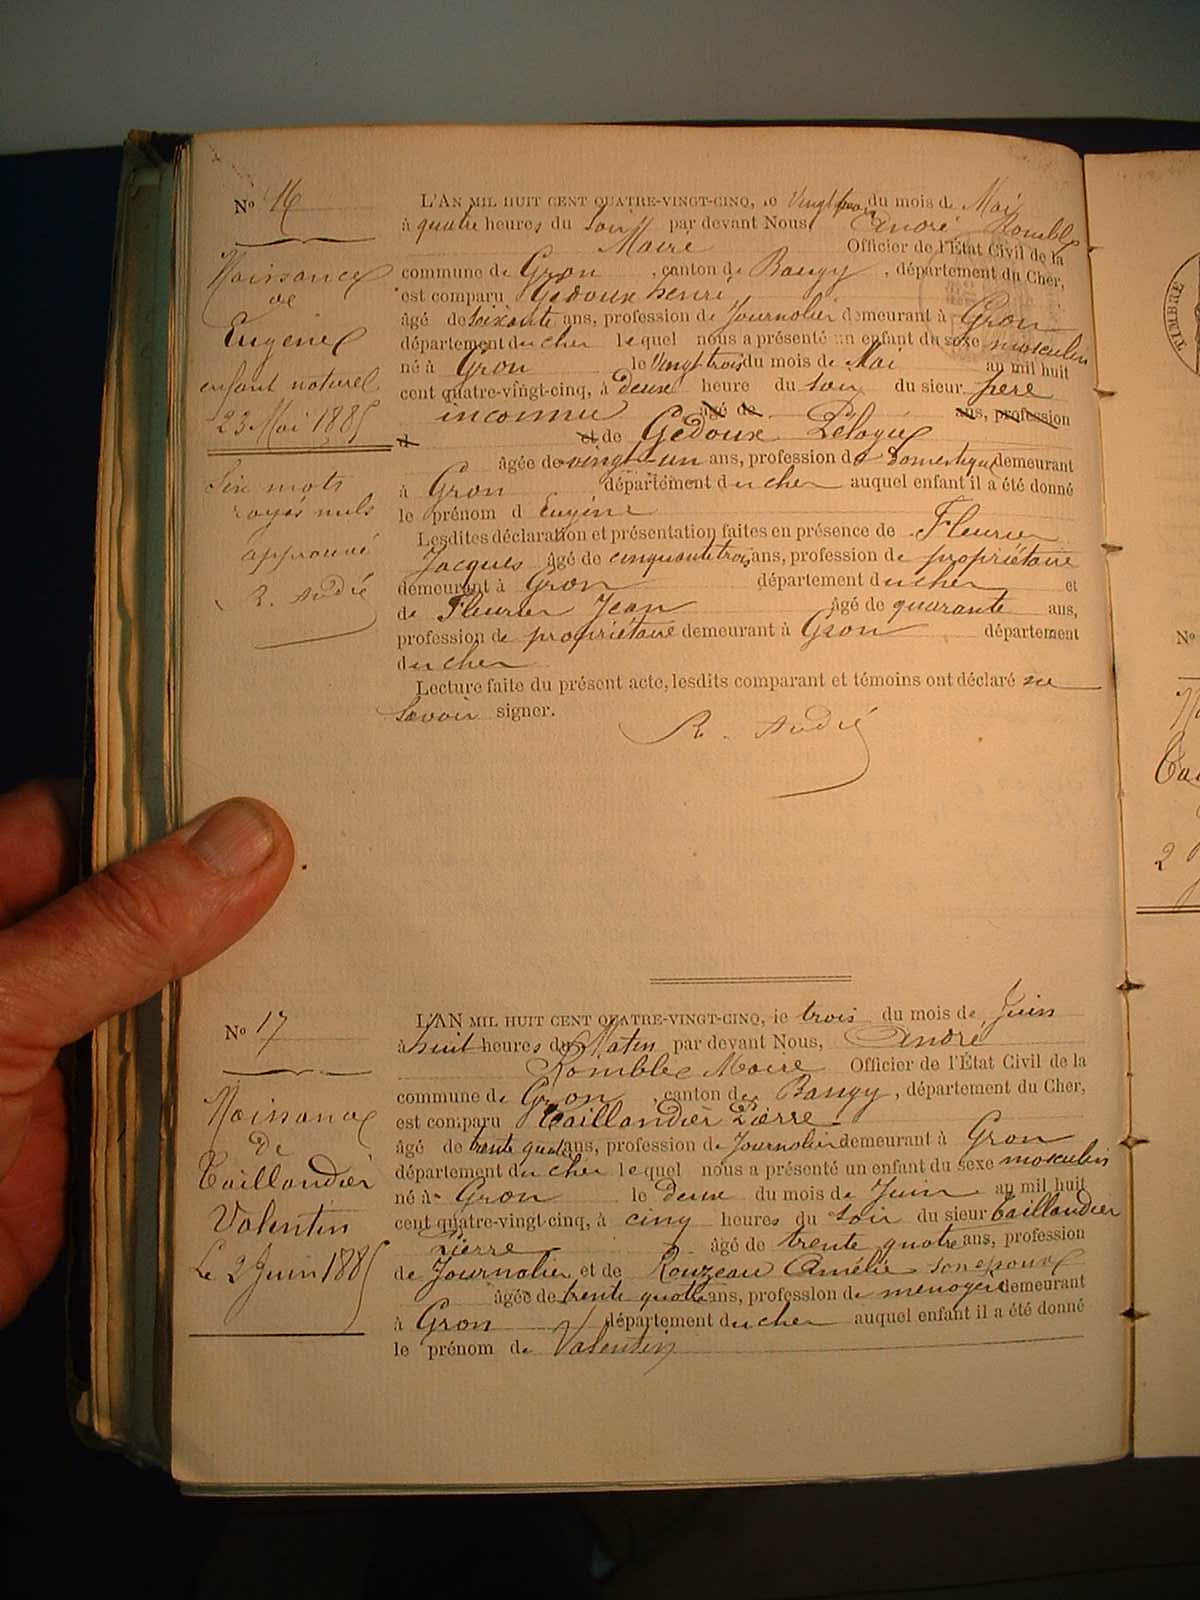 N° 16
Naissance
de
Eugène
enfant naturel
23 Mai 1885
Six mots
rayés nuls
approuvé
R. André
L'AN MIL HUIT CENT QUATRE-VINGT-CINQ, le Vingt trois du mois de Mai
à quatre heures du Soir par devant Nous André Romble
Maire Officier de l'État Civil de la
commune de Gron, canton de Baugy, département du Cher,
est comparu Gédoux henri
âgé de soixante ans, profession de Journalier demeurant à Gron
département du cher lequel nous a présenté un enfant du sexe masculin
né à Gron le Vingt trois du mois de Mai an mil huit
cent quatre-vingt-cinq, à deux heure du soir du sieur père
inconnu âgé de ans, profession
et et de Gédoux Pélagie
âgée de vingt-un ans, profession de Domestique demeurant
à Gron département du cher auquel enfant il a été donné
le prénom d Eugène
Lesdites déclaration et présentation faites en présence de Fleurier
Jacques âgé de cinquante trois ans, profession de propriétaire
demeurant à Gron département du cher et
de Fleurier Jean âgé de quarante ans,
profession de propriétaire demeurant à Gron département
du cher
Lecture faite du présent acte, lesdits comparant et témoins ont déclaré ne
savoir signer.
R. André
N° 17
Naissance
de
Taillandier
Valentin
Le 2 Juin 1885
L'AN MIL HUIT CENT QUATRE-VINGT-CINQ, le trois du mois de Juin
à huit heures du Matin par devant Nous, André
Romble Maire Officier de l'État Civil de la
commune de Gron, canton de Baugy, département du Cher,
est comparu Taillandier Pierre
âgé de trente quatre ans, profession de Journalier demeurant à Gron
département du cher lequel nous a présenté un enfant du sexe masculin
né à Gron le deux du mois de Juin an mil huit
cent quatre-vingt-cinq, à cinq heures du soir du sieur Taillandier
Pierre âgé de trente quatre ans, profession
de Journalier et de Rouzeau Amélie son épouse
âgée de trente quatre ans, profession de ménagère demeurant
à Gron département du cher auquel enfant il a été donné
le prénom de Valentin
TIMBRE
N°